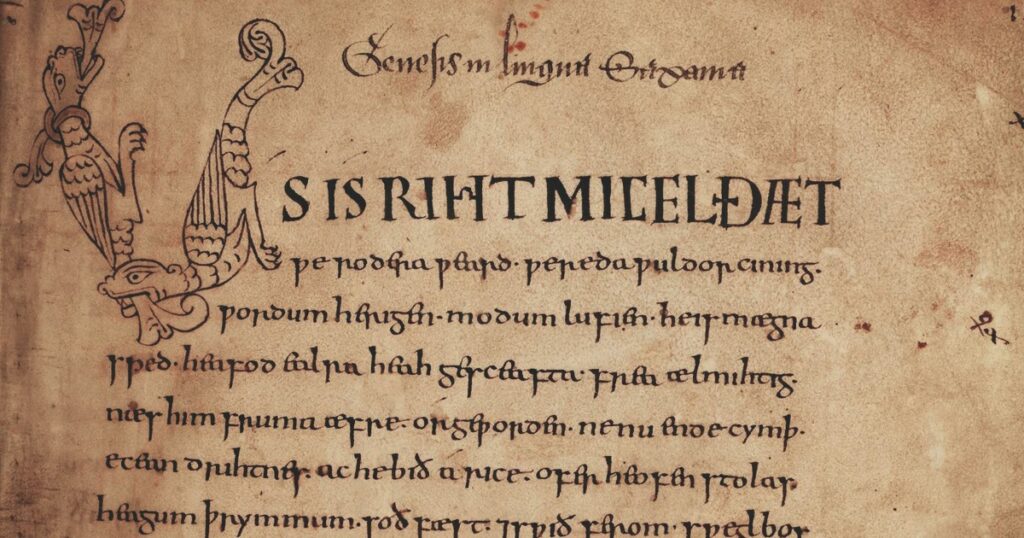 Genesis in lingua Saxania
US IS RIHT MICEL ÐÆT
ƿe rodera ƿeard· ƿereda ƿuldor cining·
ƿordum herigen· modum lufien· he is mægna
sped· heafod ealra heah gesceafta· frea ælmihtig·
næs him fruma æfre· or geƿorden· ne nu ende cymþ·
ecean drihtnes· ac he bið a rice· ofer heofen stolas·
heagum þrymmum· soð fæst· ⁊ sƿið feorm· sƿegl bos